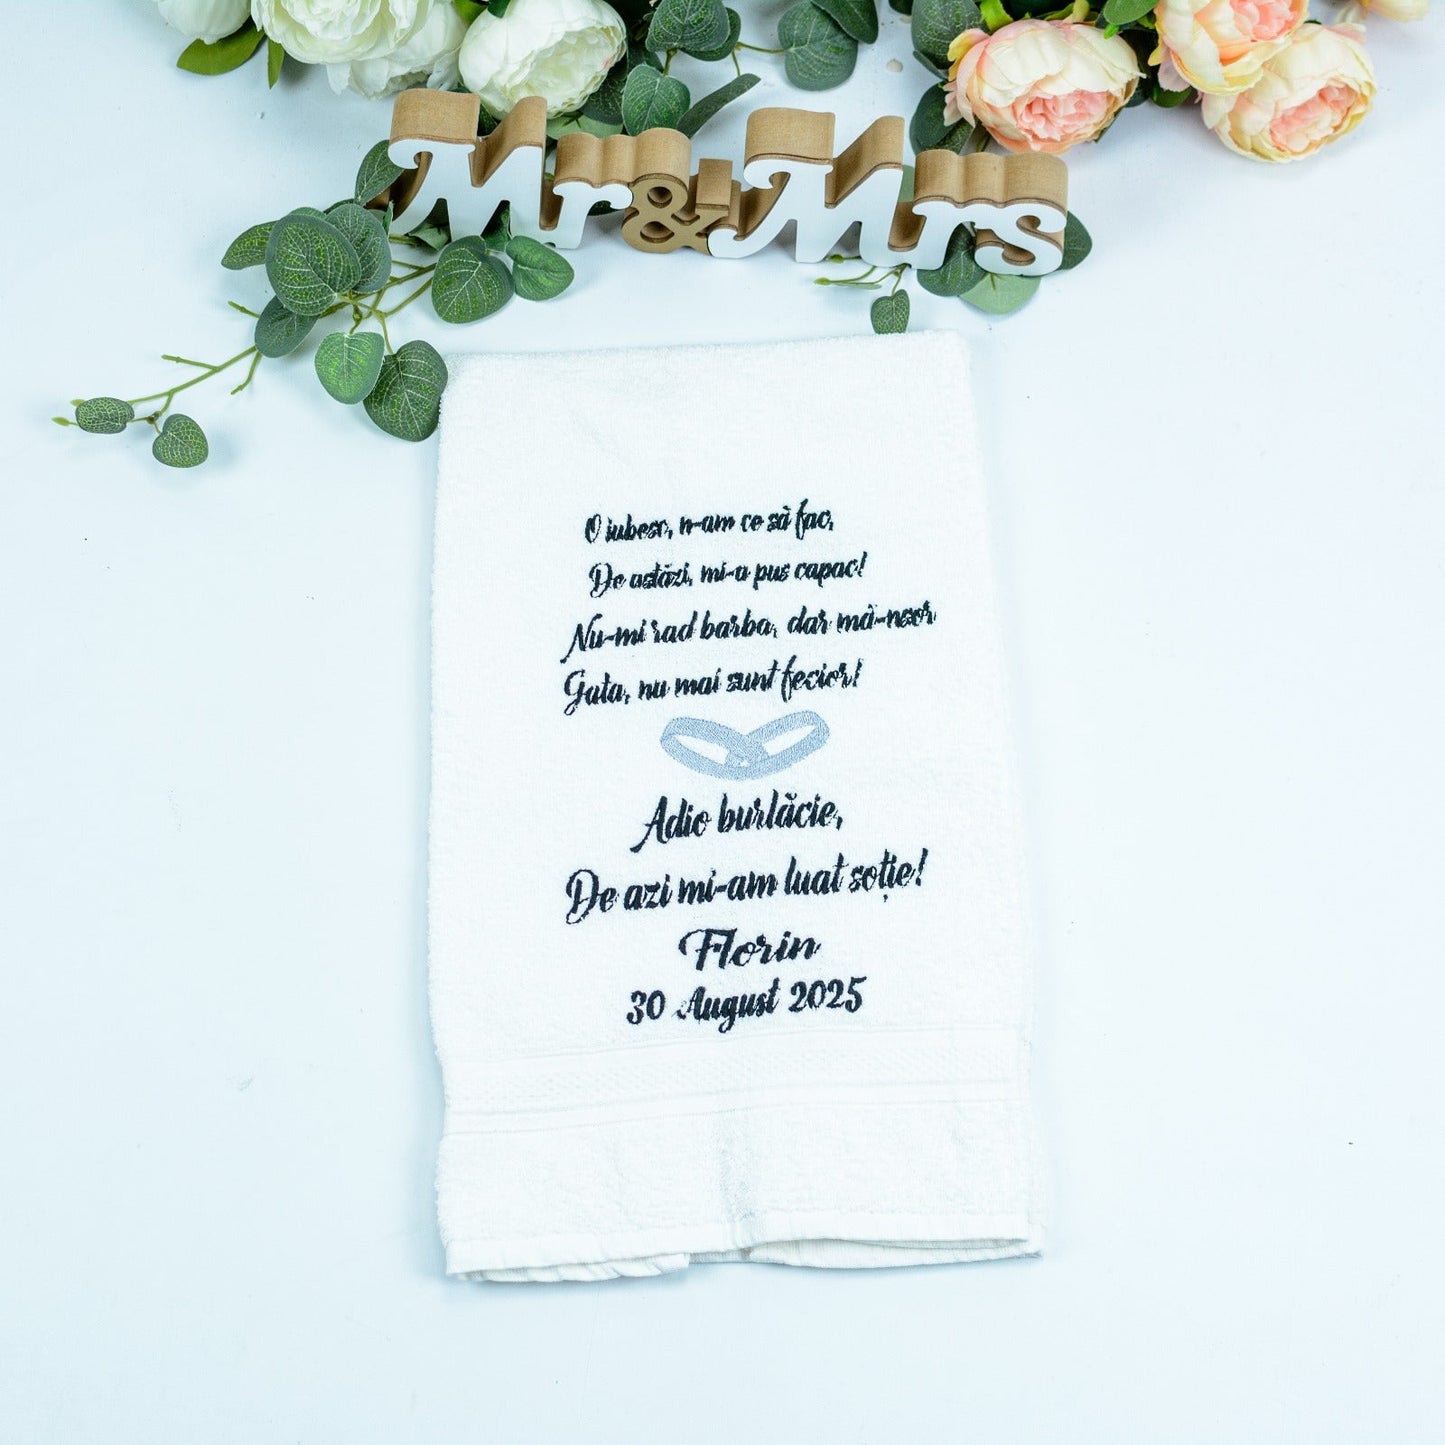 Mr & Mrs
O iubesc, n-am ce să fac,
De astăzi, mi-a pus capac!
Nu-mi rad barba, dar mă-nsor
Gata, nu mai sunt fecior!
Adio burlăcie,
De azi mi-am luat soție!
Florin
30 August 2025